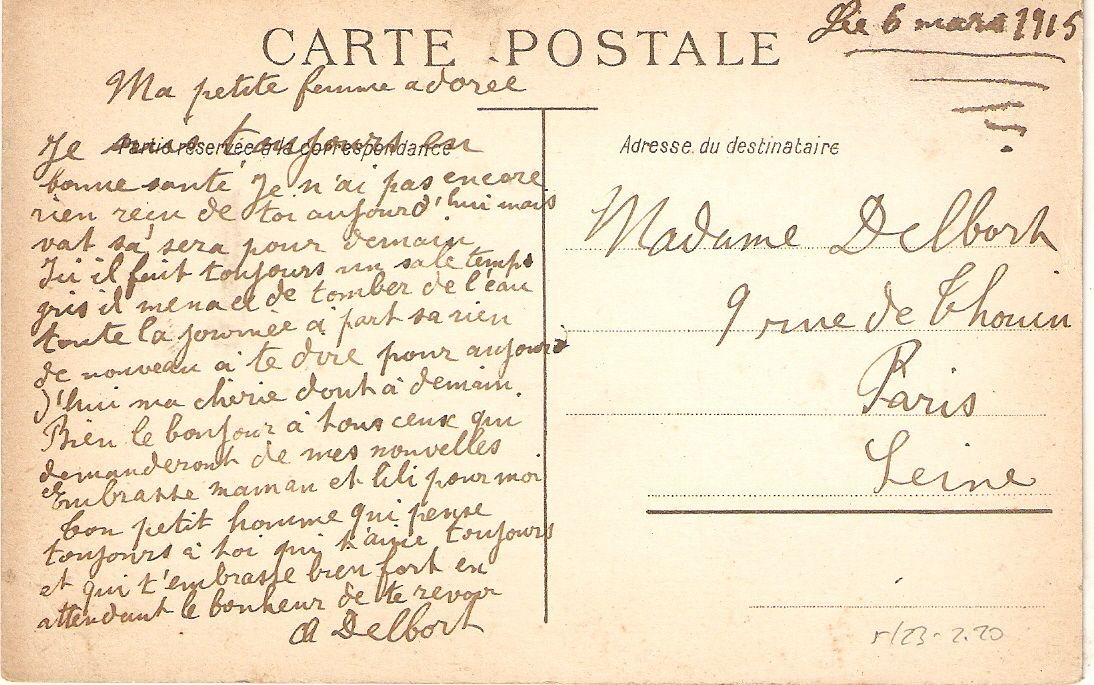 CARTE POSTALE
Le 6 mars 1915
Ma petite femme adorée
Partie réservée à la correspondance
Je suis toujours en
bonne santé Je n'ai pas encore
rien reçu de toi aujourd'hui mais
vat sa sera pour demain
Ici il fait toujours un sale temps
gris il menace de tomber de l'eau
toute la journée à part sa rien
de nouveau à te dire pour aujourd
d'hui ma chérie dont à demain
Bien le bonjour à tous ceux qui
demanderont de mes nouvelles
Embrasse maman et lili pour moi
Ton petit homme qui pense
toujours à toi qui t'aime toujours
et qui t'embrasse bien fort en
attendant le bonheur de te revoir
A Delbort
Adresse du destinataire
Madame Delbort
9 rue de Thouin
Paris
Seine